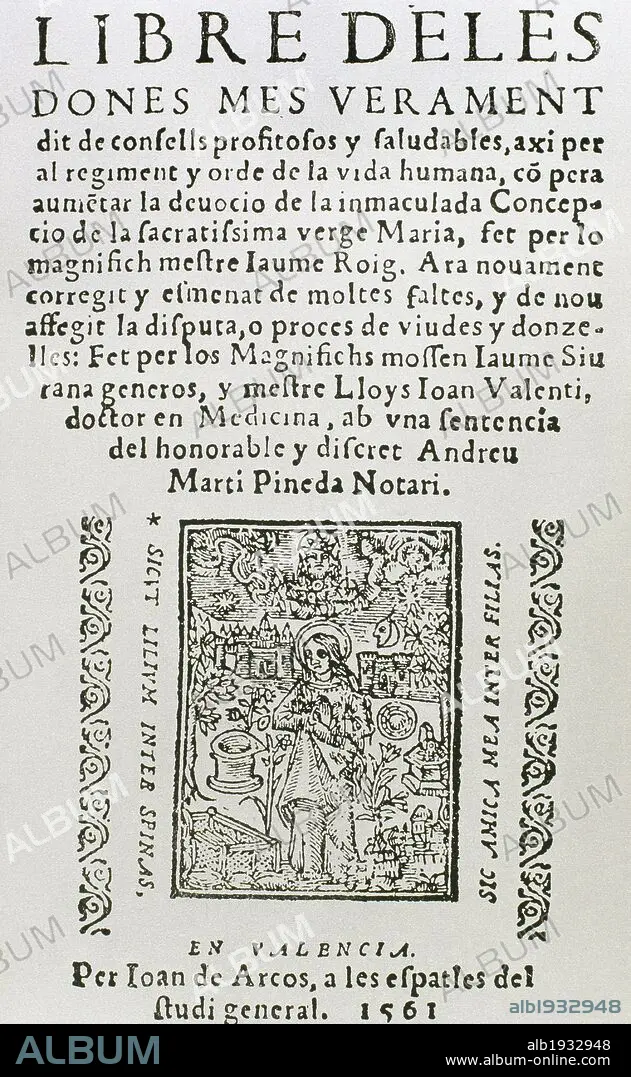 LIBRE DELES
DONES MES VERAMENT
dit de conſells profitoſos y ſaludables, axi per
al regiment y orde de la vida humana, cõ pera
aumẽtar la deuocio de la inmaculada Concep-
cio de la ſacratiſsima verge Maria, fet per lo
magnifich meſtre Iaume Roig. Ara nouament
corregit y eſmenat de moltes faltes, y de nou
affegit la diſputa, o proces de viudes y donze-
lles: Fet per los Magnifichs moſſen Iaume Siu
rana generos, y meſtre Lloys Ioan Valenti,
doctor en Medicina, ab vna ſentencia
del honorable y diſcret Andreu
Marti Pineda Notari.
* SICVT LILIVM INTER SPINAS,
SIC AMICA MEA INTER FILIAS.
EN VALENCIA.
Per Ioan de Arcos, a les eſpatles del
ſtudi general. 1561
alb1932948
ALBUM
alb1932948
www.album-online.com